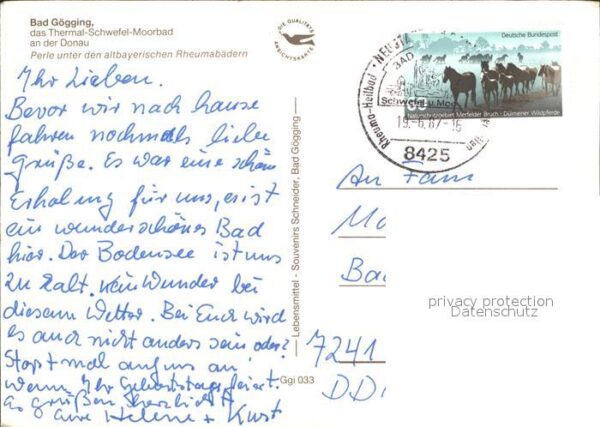 Bad Gögging,
das Thermal-Schwefel-Moorbad
an der Donau
Perle unter den altbayerischen Rheumabädern
DIE QUALITÄTS
ANSICHTSKARTE
Ihr Lieben.
Bevor wir nach hause
fahren nochmals liebe
grüße. Es war eine schöne
Erholung für uns, es ist
ein wunderschönes Bad
hier. Der Bodensee ist uns
zu kalt. kein Wunder bei
diesem Wetter. Bei Euch wird
es auch nicht anders sein oder?
Stoßt mal auf uns an
wenn Ihr Geburtstag feiert.
es grüßen Herzlichst
Eure Helene + Kurt
Lebensmittel - Souvenirs Schneider, Bad Gögging
Ggi 033
Deutsche Bundespost
Naturschutzgebiet Merfelder Bruch · Dülmener Wildpferde
BAD
Schwefel u. Moor
19.-6.87-16
Rheuma-Heilbad
8425
An Fam
Mo
Ba
7241
DD
privacy protection
Datenschutz